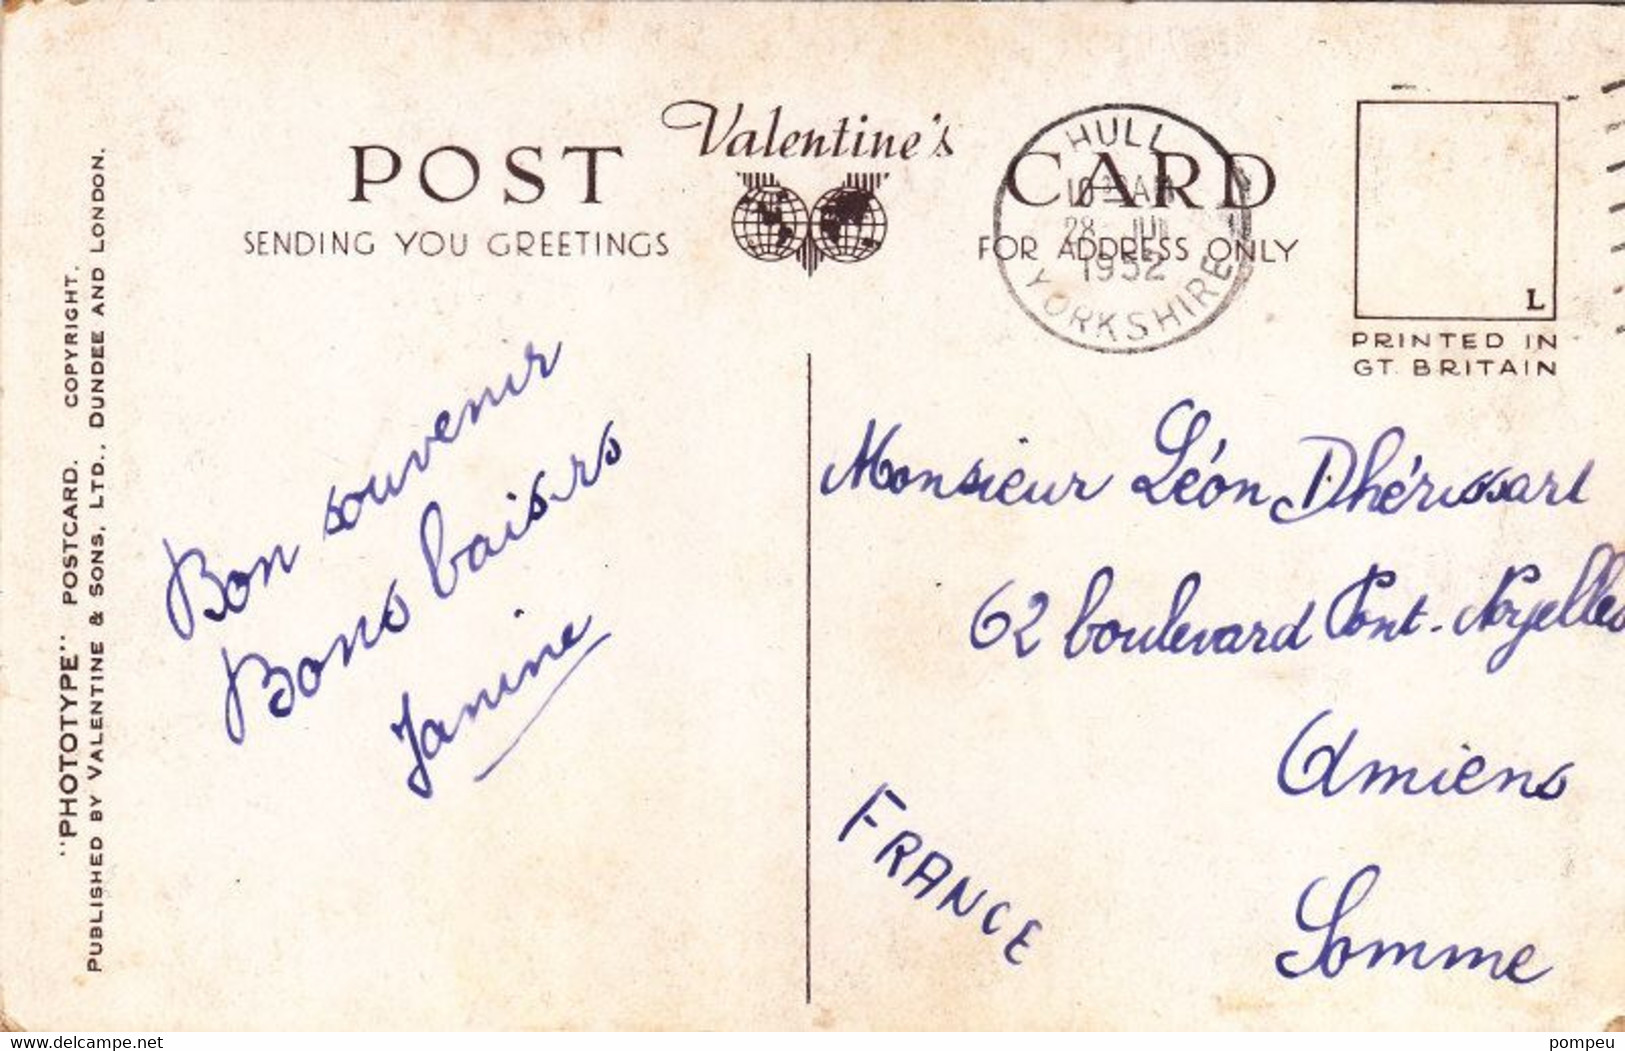 POST Valentine's CARD
SENDING YOU GREETINGS
FOR ADDRESS ONLY
HULL
28 JUL
1952
YORKSHIRE
L
PRINTED IN
GT. BRITAIN
"PHOTOTYPE" POSTCARD. COPYRIGHT.
PUBLISHED BY VALENTINE & SONS, LTD., DUNDEE AND LONDON.
Bon souvenir
Bons baisers
Janine
Monsieur Léon Dhérissart
62 boulevard Pont-Noyelles
Amiens
FRANCE
Somme
www.delcampe.net
pompeu